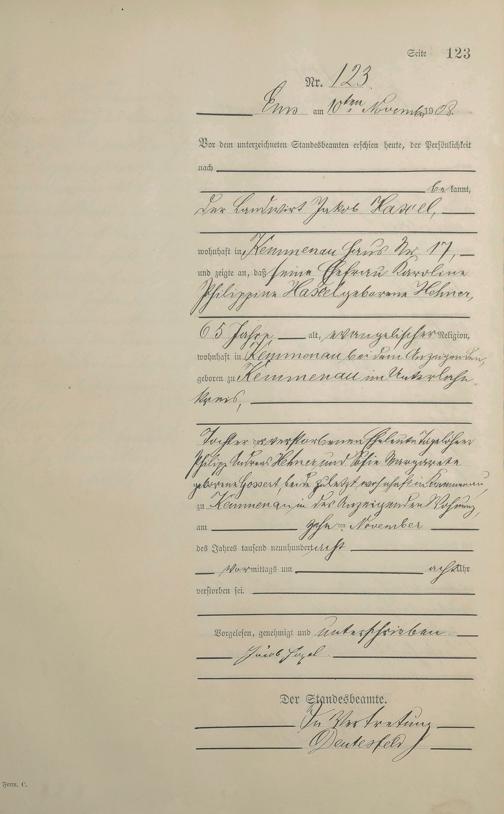 Seite 123
Nr. 123
Ems am 10ten November 1908.
Vor dem unterzeichneten Standesbeamten erschien heute, der Persönlichkeit
nach
bekannt,
der Landwirt Jakob Hasel,
wohnhaft in Kemmenau Haus Nr. 17,
und zeigte an, daß seine Ehefrau Karoline
Philippine Hasel geborene Hehner,
65 Jahre alt, evangelischer Religion,
wohnhaft in Kemmenau bei dem Anzeigenden,
geboren zu Kemmenau im Unterlahn-
kreis,
Tochter der verstorbenen Eheleute Tagelöhner
Philipp Andreas Hehner und Margarete
geborene Gossert, beide zuletzt wohnhaft in Kemmenau
zu Kemmenau in des Anzeigenden Wohnung,
am zehn November
des Jahres tausend neunhundert acht
Vormittags um acht Uhr
verstorben sei.
Vorgelesen, genehmigt und unterschrieben
Jacob Hasel
Der Standesbeamte.
In Vertretung
Form. C.